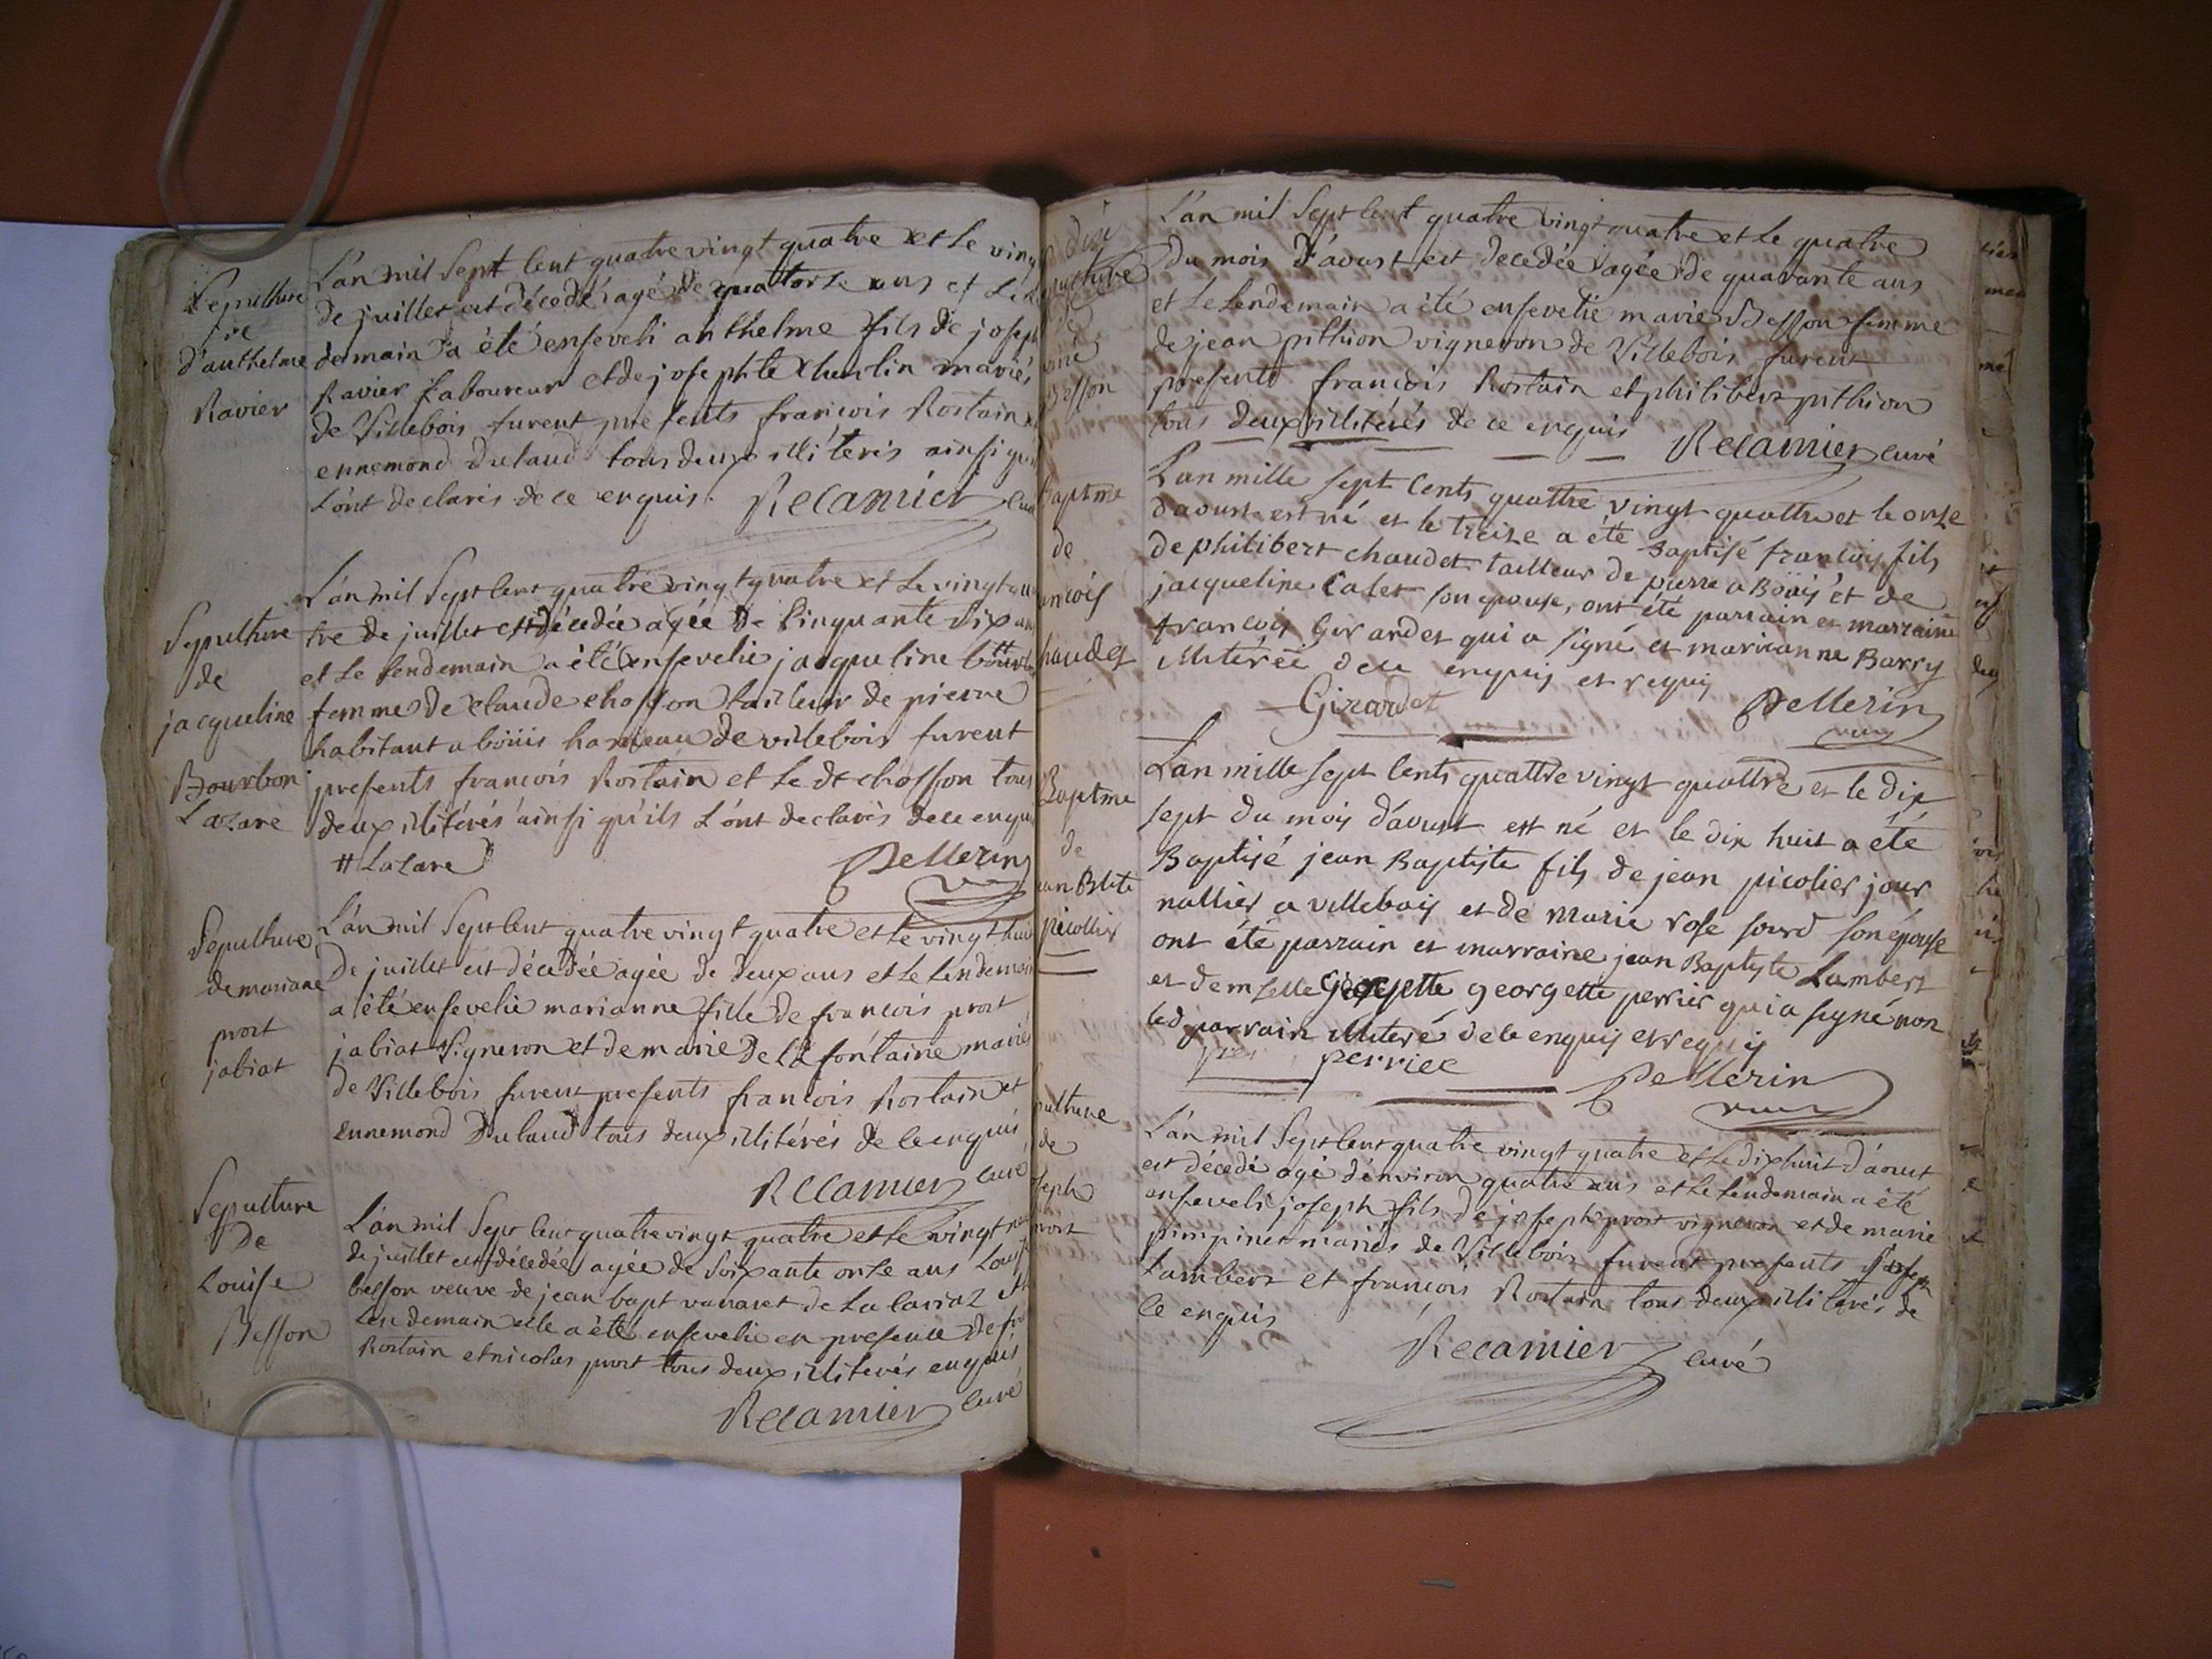 Sepulture
de
d'anthelme
Ravier
L'an mil sept cent quatre vingt quatre et le ving
de juillet est décedé agé de quatorze ans et le
demain a été enseveli anthelme fils de joseph
Ravier Laboureur et de josephte mariés
de Villebois furent presents francois Rostain
ennemond Dulaud tous deux illiterés ainsi qu
L'ont declarés de ce enquis. Recamier curé
Sepulture
de
jacqueline
Bourbon
Lazare
L'an mil sept cent quatre vingt quatre et le vingt qua
tre de juillet est décedée agée de cinquante six ans
et le lendemain a été ensevelie jacqueline bourbon
femme de claude chosson tailleur de pierre
habitant a boüis hameau de villebois furent
presents francois Rostain et le dt chosson tous
deux illitérés ainsi qu'ils L'ont declarés de ce enquis
# Lazare
Pellerin
vic
Sepulture
de mariane
prost
jabiat
L'an mil sept cent quatre vingt quatre et le vingt huit
de juillet est décedée agée de deux ans et le lendemain
a été ensevelie marianne fille de francois prost
jabiat Vigneron et de marie de la fontaine mariés
de Villebois furent presents francois Rostain et
ennemond Dulaud tous deux illitérés de ce enquis
Recamier curé
Sepulture
De
Louise
Besson
L'an mil sept cent quatre vingt quatre et le vingt
de juillet est décedée agée de soixante onze ans Louise
besson veuve de jean bapt vanaret de La
lendemain elle a été ensevelie en presence de
Rostain et nicolas prost tous deux illiterés enquis
Recamier curé
pulture
de
Besson
L'an mil sept cent quatre vingt quatre et le quatre
du mois d'avoust est decedée agée de quarante ans
et le lendemain a été ensevelie marie Besson femme
de jean pithion vigneron de Villebois furent
presents francois Rostain et philibert pithion
tous deux illitérés de ce enquis Recamier curé
Baptme
de
ancois
haudet
L'an mille sept cents quattre vingt quattre et le onze
d'avoust est né et le treize a été Baptisé francois fils
de philibert chaudet tailleur de pierre a Boüis et de
jacqueline Calet son epouse, ont été parrain et marraine
francois Girardet qui a signé et marianne Barry
illitérée de ce enquis et requis
Girardet Pellerin
vic
Baptme
de
ean Btite
picollier
L'an mille sept cents quattre vingt quattre et le dix
sept du mois d'avoust est né et le dix huit a été
Baptisé jean Baptiste fils de jean picolier jour
nallier a villebois et de marie rose sourd son épouse
ont été parrain et marraine jean Baptiste Lambert
et demlselle georgette perrier qui a signé non
led parrain illiteré de ce enquis et requis
perrier
Pellerin
vic
pulture
de
oseph
prost
L'an mil sept cent quatre vingt quatre et le dixhuit d'aoust
est décedé agé d'environ quatre ans et le lendemain a été
enseveli joseph fils de joseph prost vigneron et de marie
pimpinet mariés de Villebois furent presents joseph
Lambert et francois Rostain tous deux illiterés de
ce enquis
Recamier curé